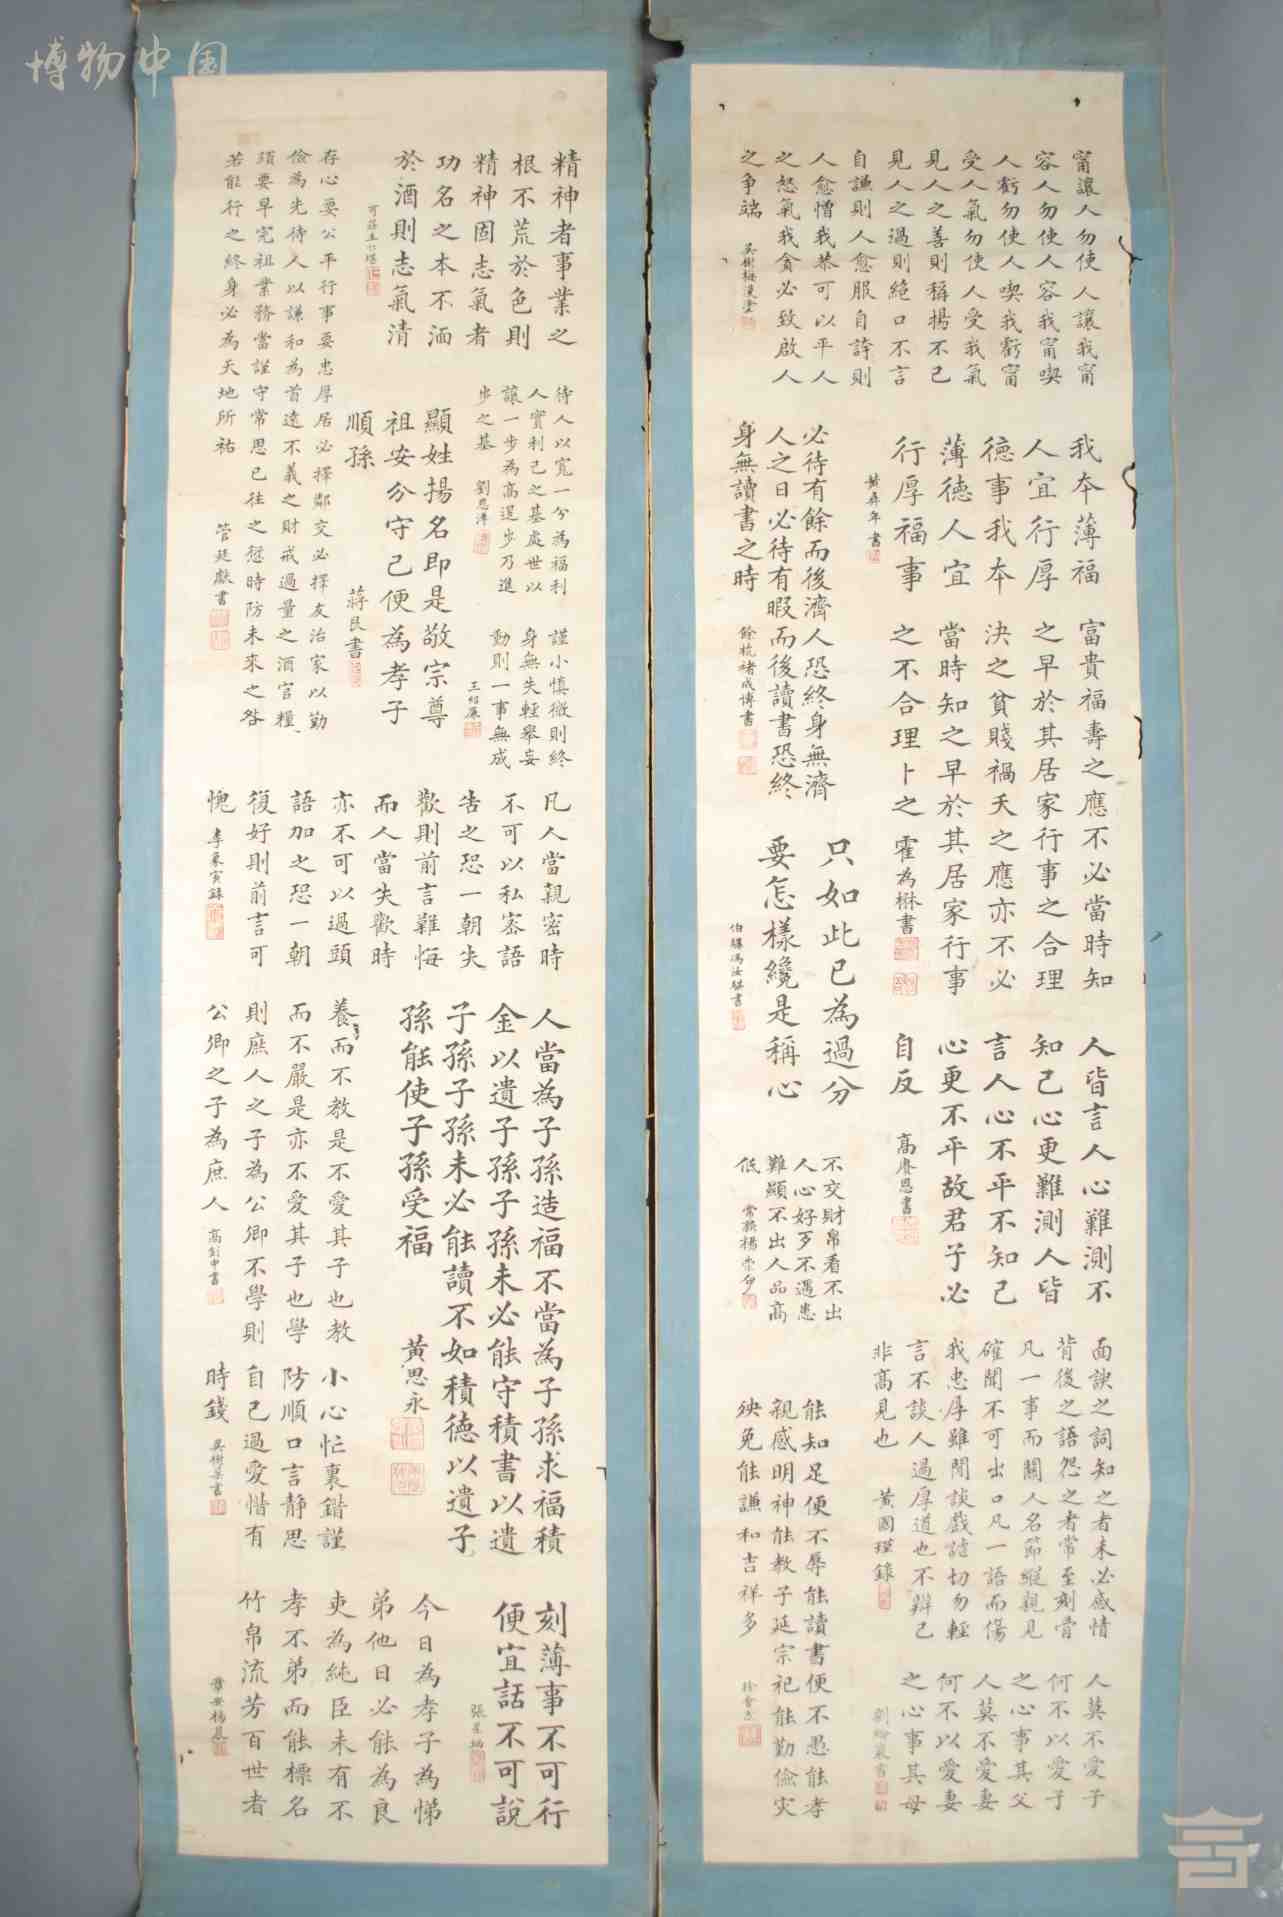 博物中国
甯讓人勿使人讓我甯
容人勿使人容我甯喫
人虧勿使人喫我虧甯
受人氣勿使人受我氣
見人之善則稱揚不已
見人之過則絕口不言
自謙則人愈服自誇則
人愈憎我恭可以平人
之怒氣我貪必致啟人
之爭端
吳樹梅
我本薄福
人宜行厚
德事我本
薄德人宜
行厚福事
黃彝年書
必待有餘而後濟人恐終身無濟
人之日必待有暇而後讀書恐終
身無讀書之時
餘杭褚成博書
富貴福壽之應不必當時知
之早於其居家行事之合理
決之貧賤禍夭之應亦不必
當時知之早於其居家行事
之不合理卜之
霍為楙書
只如此已為過分
要怎樣纔是稱心
伯驥馮汝騤書
人皆言人心難測不
知己心更難測人皆
言人心不平不知己
心更不平故君子必
自反
高賡恩書
不交財帛看不出
人心好歹不遇患
難顯不出人品高
低
常熟楊崇伊
面諛之詞知之者未必感情
背後之語怨之者常至刻骨
凡一事而關人名節縱親見
確聞不可出口凡一語而傷
我忠厚雖閒談戲謔切勿輕
言不談人過厚道也不辯己
非高見也
黃國瑾錄
能知足便不辱能讀書便不愚能孝
親感明神能教子延宗祀能勤儉災
殃免能謙和吉祥多
徐會灃
人莫不愛子
何不以愛子
之心事其父
人莫不愛妻
何不以愛妻
之心事其母
精神者事業之
根不荒於色則
精神固志氣者
功名之本不湎
於酒則志氣清
可莊王仁堪
待人以寬一分為福利
人實利己之基處世以
讓一步為高退步乃進
步之基
劉恩溥
顯姓揚名即是敬宗尊
祖安分守己便為孝子
順孫
蔣艮書
存心要公平行事要忠厚居必擇鄰交必擇友治家以勤
儉為先待人以謙和為首遠不義之財戒過量之酒官糧
須要早完祖業務當謹守常思已往之愆時防未來之咎
若能行之終身必為天地所祐
管廷獻書
謹小慎微則終
身無失輕舉妄
動則一事無成
凡人當親密時
不可以私密語
告之恐一朝失
歡則前言難悔
而人當失歡時
亦不可以過頭
語加之恐一朝
復好則前言可
愧
人當為子孫造福不當為子孫求福積
金以遺子孫子孫未必能守積書以遺
子孫子孫未必能讀不如積德以遺子
孫能使子孫受福
黃思永
養而不教是不愛其子也教
而不嚴是亦不愛其子也學
則庶人之子為公卿不學則
公卿之子為庶人
高釗中書
小心忙裏錯謹
防順口言靜思
自己過愛惜有
時錢
吳樹棻書
刻薄事不可行
便宜話不可說
今日為孝子為悌
弟他日必能為良
吏為純臣未有不
孝不弟而能標名
竹帛流芳百世者